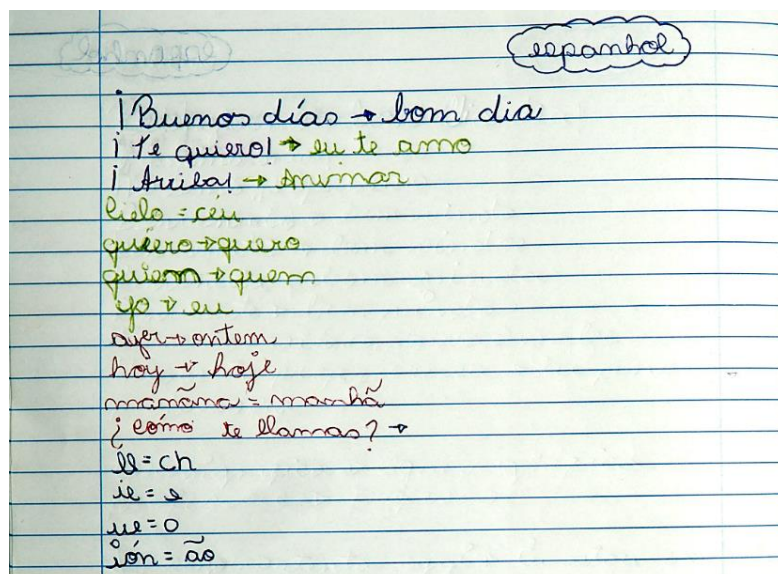 espanhol
¡Buenos días → bom dia
¡Te quiero! → eu te amo
¡Arriba! → Animar
Cielo = céu
quiero → quero
quiem → quem
yo → eu
ayer → ontem
hoy → hoje
mãnãna = manhã
¿cómo te llamas? →
ll = ch
ie = e
ue = o
ión = ão